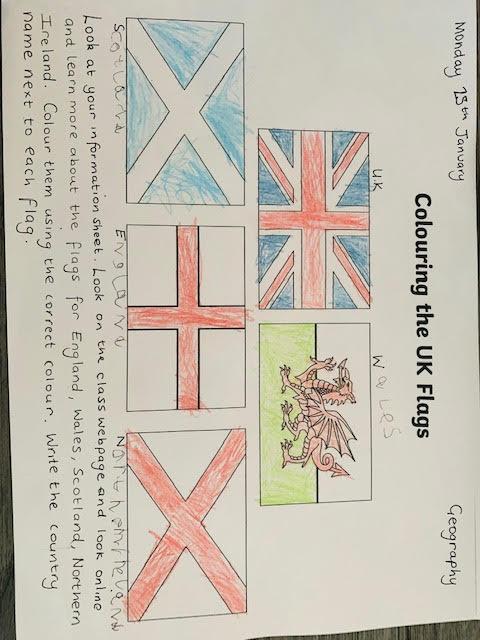 Monday 25th January
Geography
Colouring the UK Flags
U.K
Wales
Scotland
England
Northern Ireland
Look at your information sheet. Look on the class webpage and look online
and learn more about the flags for England, Wales, Scotland, Northern
Ireland. Colour them using the correct colour. Write the country
name next to each flag.